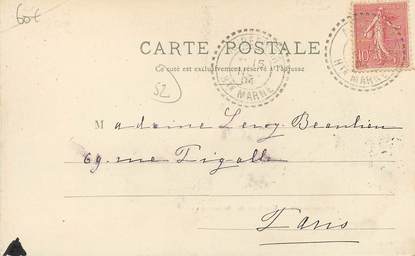 60€
CARTE POSTALE
Ce côté est exclusivement réservé à l'adresse
10
15
04
Hte MARNE
Hte MARNE
52
Madame Leroy Beaulieu
69, rue Pigalle
Paris